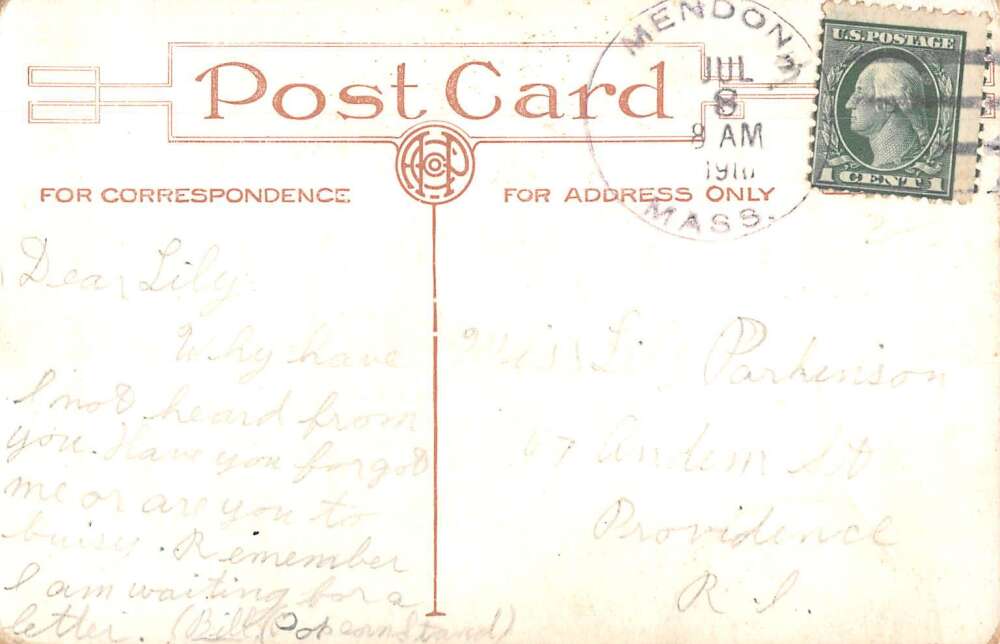 Post Card
MENDON
JUL
8
8 AM
MASS.
U.S. POSTAGE
1 CENT 1
FOR CORRESPONDENCE
FOR ADDRESS ONLY
Dear Lily
Why have
I not heard from
you. Have you forgot
me or are you to
buisy. Remember
I am waiting for a
letter. (Bill Popcorn Stand)
Miss Lily Parkinson
67 Andem St
Providence
R. I.